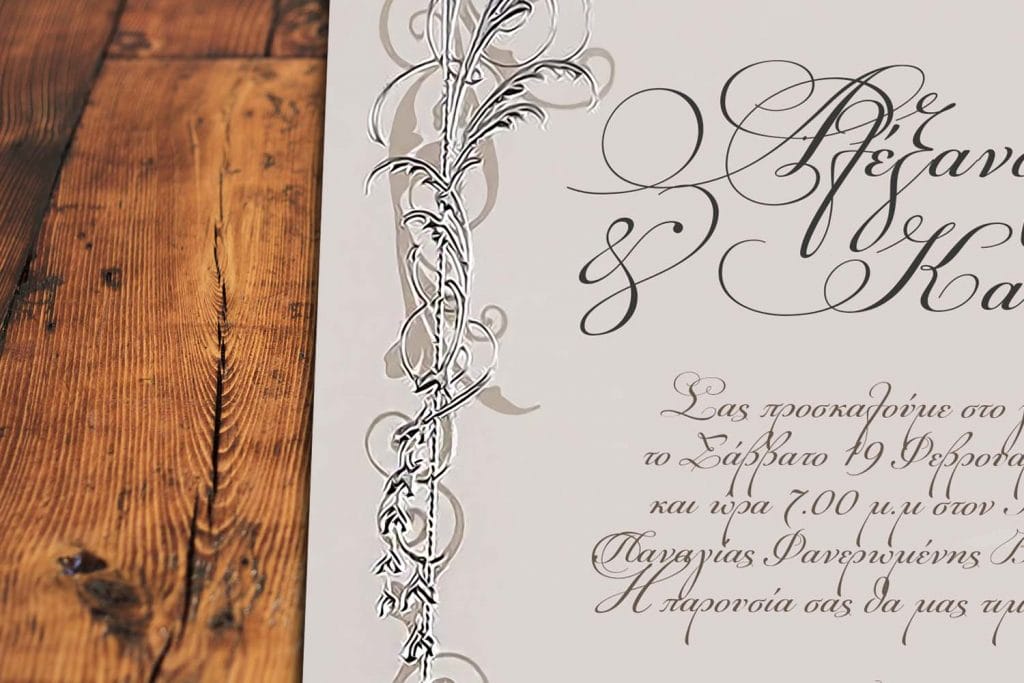 Αλέξανδ
& Κα
Σας προσκαλούμε στο γ
το Σάββατο 19 Φεβρουα
και ώρα 7.00 μ.μ στον Ι
Παναγίας Φανερωμένης Β
Η παρουσία σας θα μας τιμ